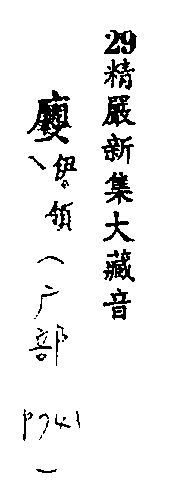 29精嚴新集大藏音
廮、伊領（广部 P741）